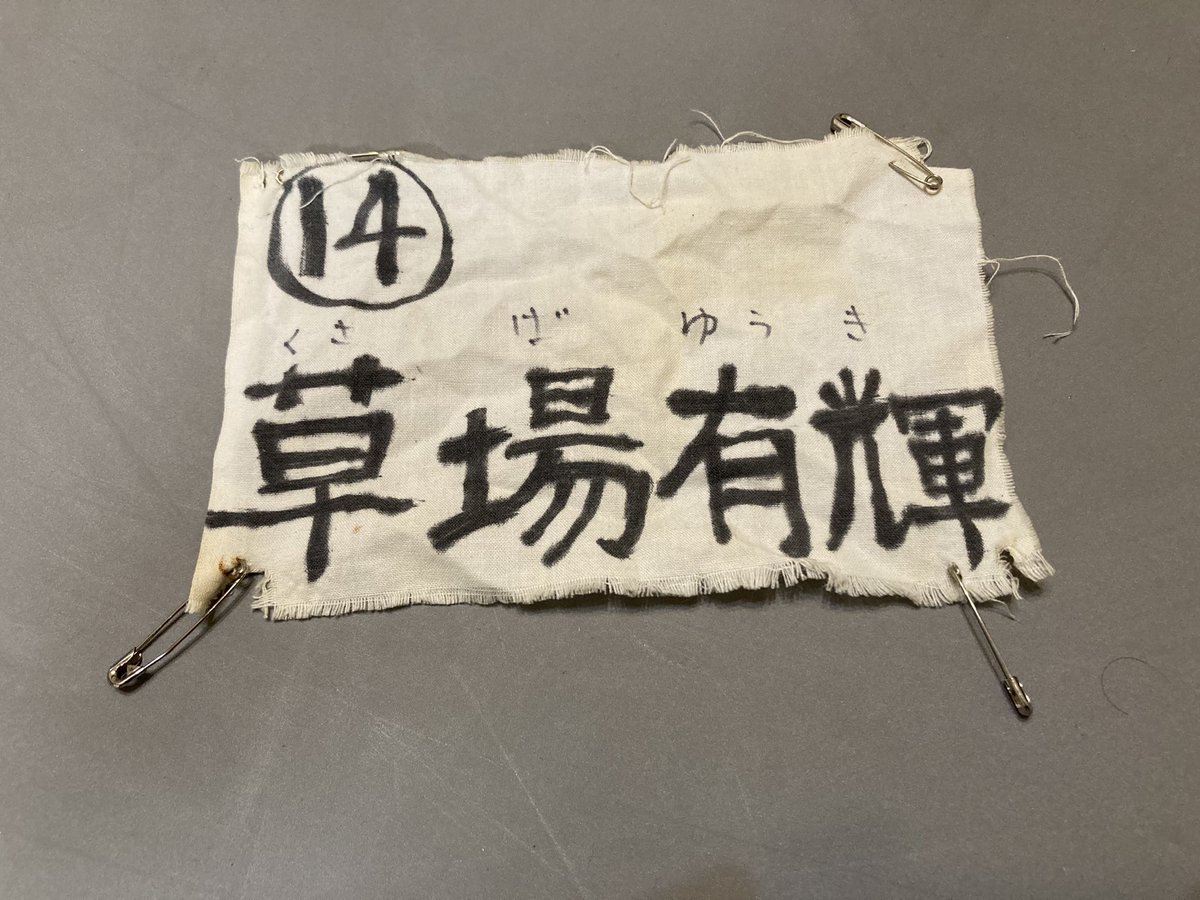 ⑭
くさ ば ゆう き
草場有輝